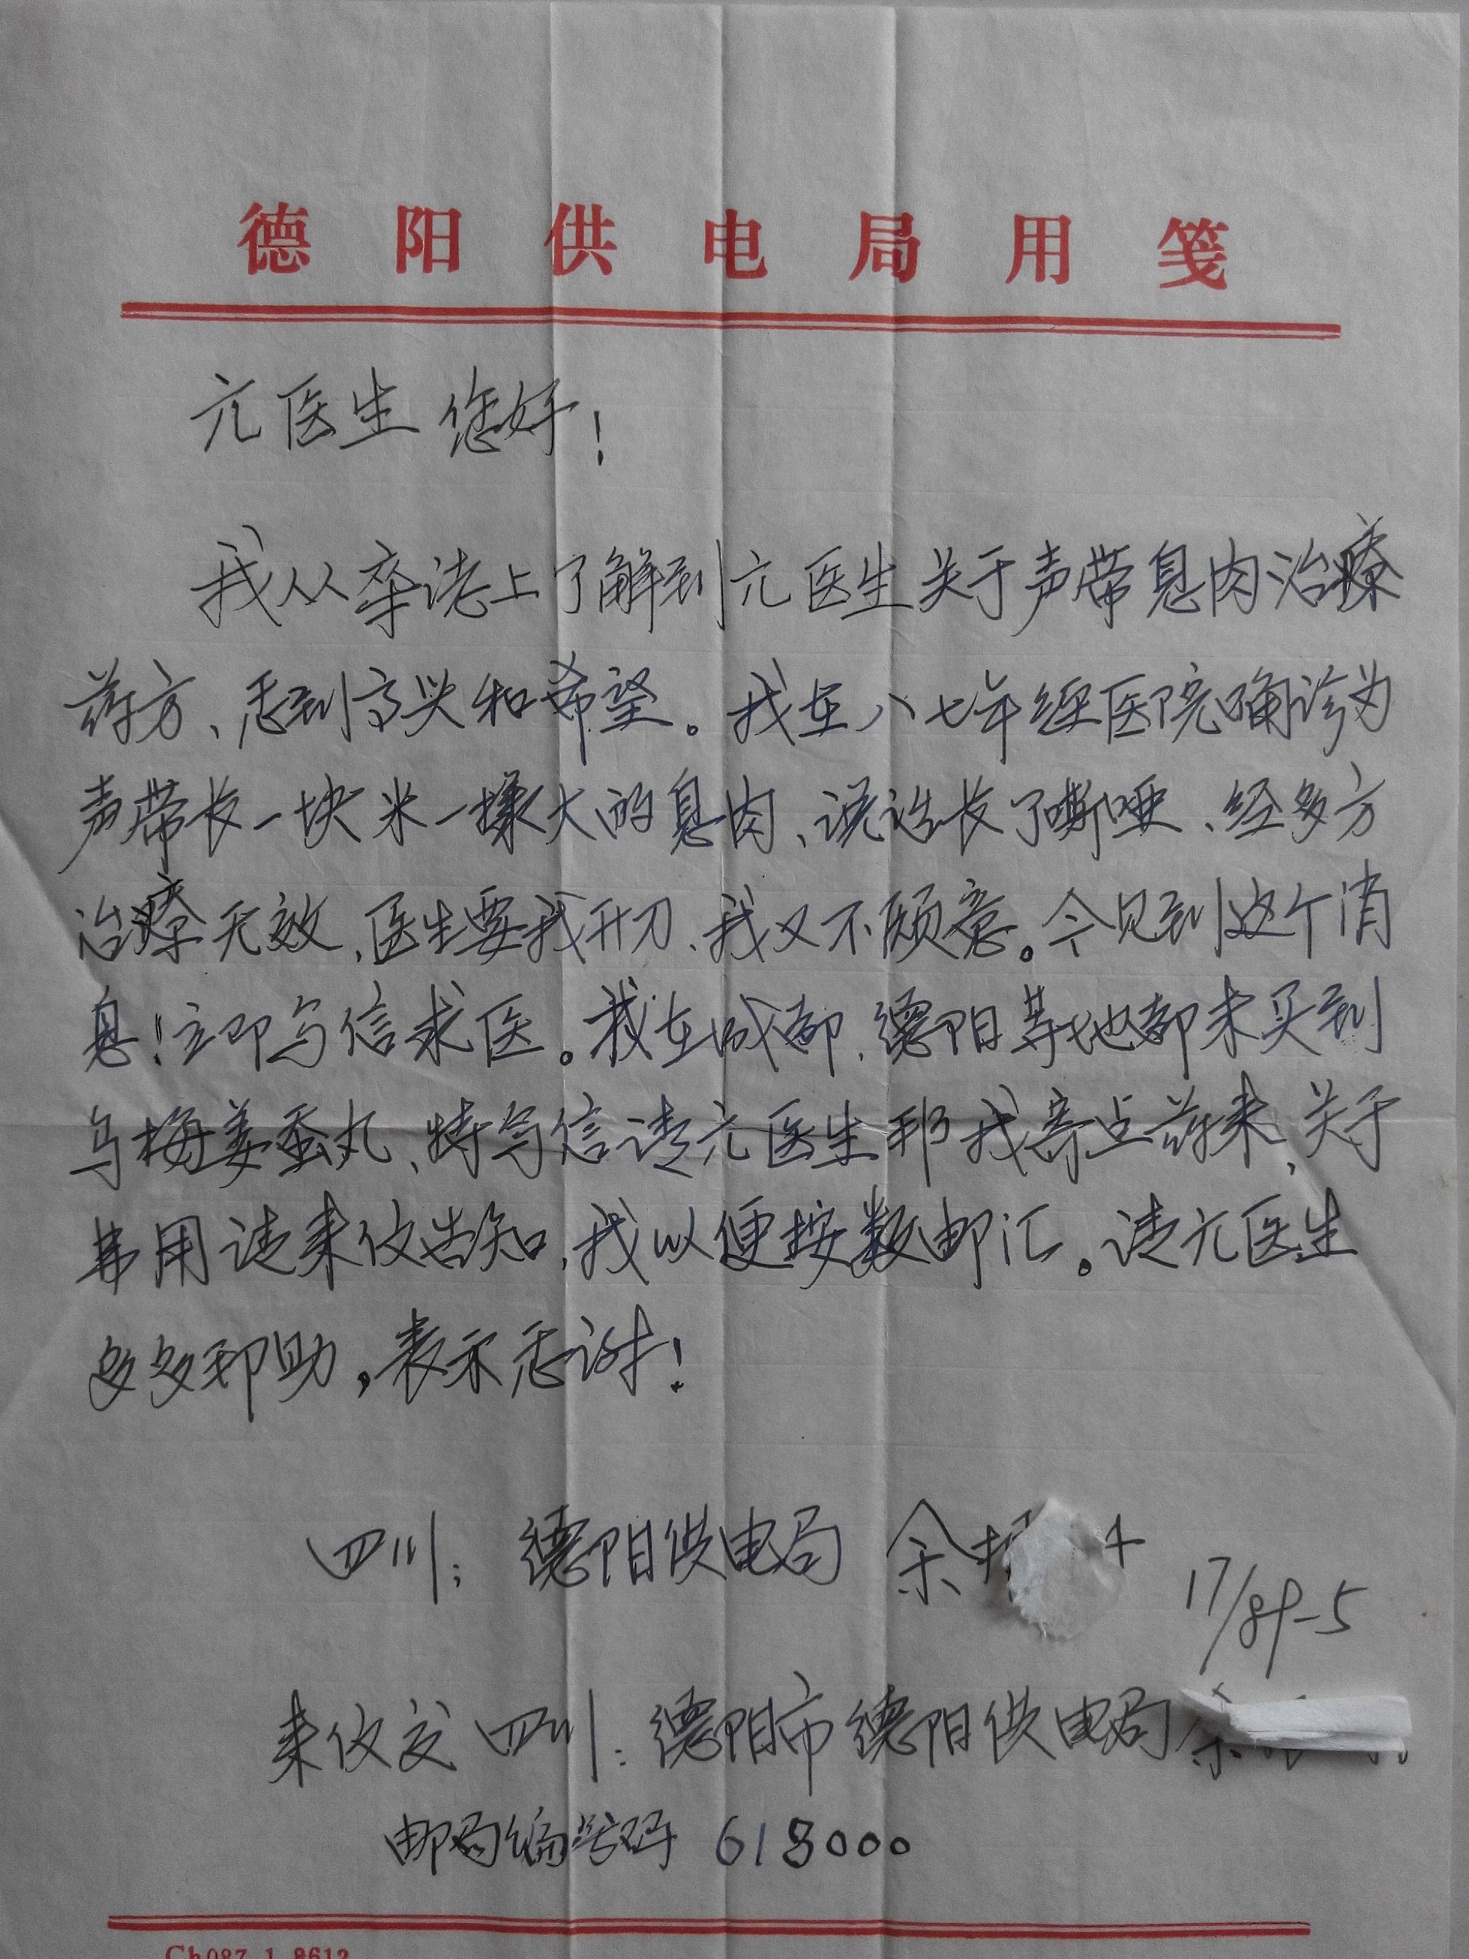 德阳供电局用笺
亢医生 您好！
我从杂志上了解到亢医生关于声带息肉治疗
药方、感到高兴和希望。我在八七年经医院确诊为
声带长一块米一样大的息肉、说话长了嘶哑、经多方
治疗无效、医生要我开刀、我又不愿意。今见到这个消
息！立即写信求医。我在成都、德阳等地都未买到
乌梅姜蚕丸、特写信请亢医生邦我寄点药来、关于
费用请来仪告知、我以便按数邮汇。请亢医生
多多邦助，表示感谢！
四川：德阳供电局 余
17/89-5
来仪交四川：德阳市德阳供电局余
邮局编号码 618000
Ch087-1-8612